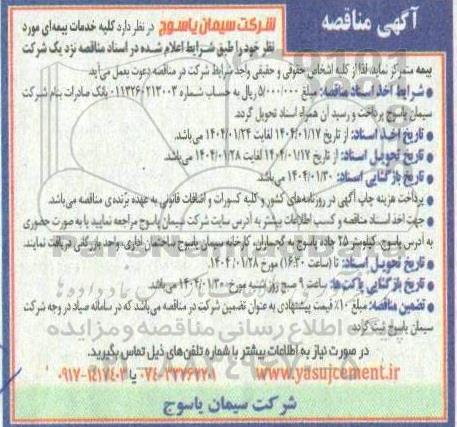 آگهی مناقصه
شرکت سیمان یاسوج در نظر دارد کلیه خدمات بیمه‌ای مورد
نظر خود را طبق شرایط اعلام شده در اسناد مناقصه نزد یک شرکت
بیمه متمرکز نماید، لذا از کلیه اشخاص حقوقی و حقیقی واجد شرایط شرکت در مناقصه دعوت بعمل می‌آید.
● شرایط اخذ اسناد مناقصه: مبلغ ۵/۰۰۰/۰۰۰ ریال به حساب شماره ۰۱۱۳۲۶۰۲۱۳۰۰۳ بانک صادرات بنام شرکت
سیمان یاسوج پرداخت و رسید آن همراه اسناد تحویل گردد.
● تاریخ اخذ اسناد: از تاریخ ۱۴۰۴/۰۱/۱۷ لغایت ۱۴۰۴/۰۱/۲۴ می‌باشد.
● تاریخ تحویل اسناد: از تاریخ ۱۴۰۴/۰۱/۱۷ لغایت ۱۴۰۴/۰۱/۲۸ می‌باشد.
● تاریخ بازگشایی اسناد: ۱۴۰۴/۰۱/۳۰ می‌باشد.
● پرداخت هزینه چاپ آگهی در روزنامه‌های کشور و کلیه کسورات و اضافات قانونی به عهده برنده‌ی مناقصه می‌باشد.
● جهت اخذ اسناد مناقصه و کسب اطلاعات بیشتر به آدرس سایت شرکت سیمان یاسوج مراجعه نمایید یا به صورت حضوری
به آدرس یاسوج، کیلومتر ۲۵ جاده یاسوج به گچساران، کارخانه سیمان یاسوج ساختمان اداری، واحد بازرگانی دریافت نمایند.
● تاریخ تحویل اسناد: تا (ساعت ۱۶:۳۰) مورخ ۱۴۰۴/۰۱/۲۸
● تاریخ بازگشایی پاکت‌ها: ساعت ۹ صبح روز شنبه مورخ ۱۴۰۴/۰۱/۳۰ می‌باشد.
● تضمین مناقصه: مبلغ ۱۰٪ قیمت پیشنهادی به عنوان تضمین شرکت در مناقصه می‌باشد که در سامانه صیاد در وجه شرکت
سیمان یاسوج ثبت گردد.
در صورت نیاز به اطلاعات بیشتر با شماره تلفن‌های ذیل تماس بگیرید.
www.yasujcement.ir ۰۷۴-۳۳۲۷۶۲۲۸ یا ۰۹۱۷-۱۴۱۷۴۰۳
شرکت سیمان یاسوج